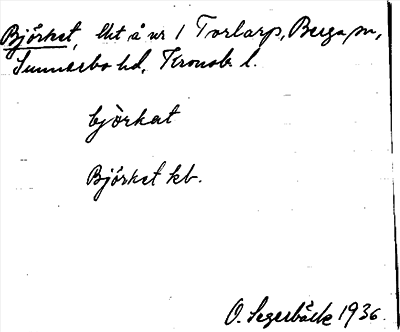 Björket, lht å nr 1 Torlarp, Berga sn,
Sunnerbo hd, Kronob l.
bjò̀rkat
Björket kb.
O. Segerbäck 1936.